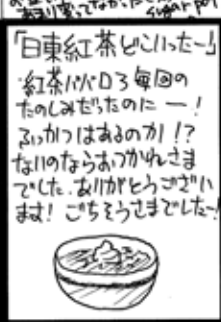 「日東紅茶どこいった〜」
紅茶ババロア毎回の
たのしみだったのにー!
ふっかつはあるのか!?
ないのならおつかれさま
でした。ありがとうござい
ます! ごちそうさまでした〜!